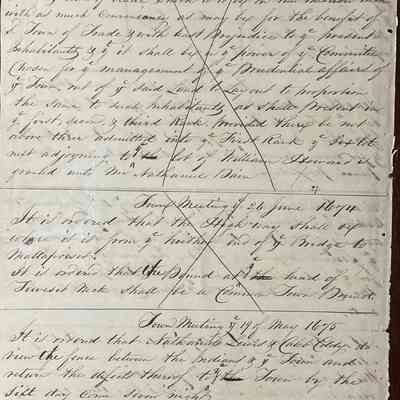 with as much Conveniency as may be for the benefit of
Town of Trade & with least Prejudice to yᵉ present
Inhabitants & yᵗ it shall be in yᵉ power of yᵉ Committee
Chosen for yᵉ management of yᵉ Prudential affairs of
yᵉ Town out of yᵉ said Land to Layout to proportion
the Same to such Inhabitants as shall present in
yᵉ first, second & third Rank provided there be not
above three admitted into yᵉ First Rank yᵉ lot
next adjoyning to yᵉ lot of William Howard is
granted unto Mr Nathaniel
Town Meeting yᵉ 26 June 1674
It is ordered that the High way shall
where it is from yᵉ hither end of yᵉ Bridge to
Mattapoiset.
It is ordered that the Pound at yᵉ head of
Towesit Neck shall be a Common Town Pound.
Town Meeting yᵉ 19 of May 1675
It is ordered that Nathaniel Lewis & Caleb Eddy do
view the fence between the Indians & yᵉ Town and
return the defects thereof to yᵉ Town by the
day Come